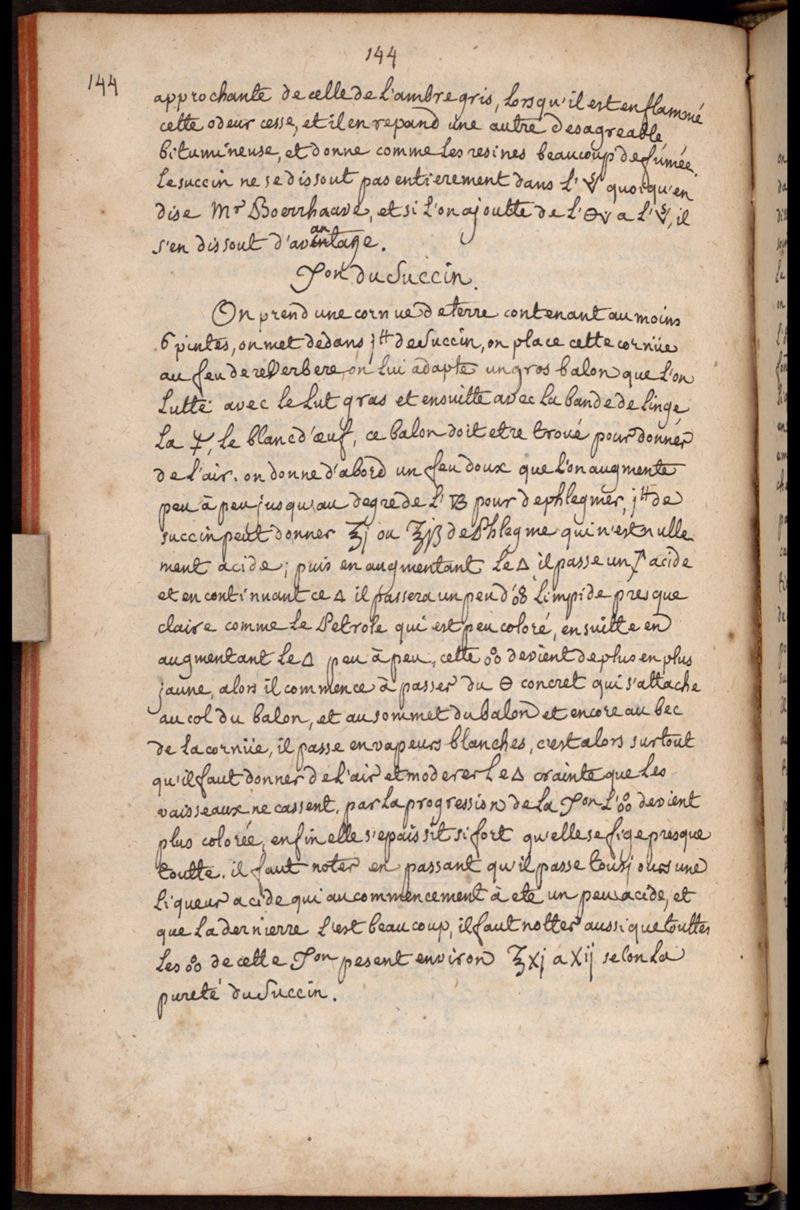 144
144
approchante de celle de L'ambre gris, Lorsqu'il est enflammé
cette odeur cesse, et il en repand une autre desagreable
bitumineuse, et donne comme Les resines beaucoup de fumée.
Le succin ne se dissout pas entierement dans L' quoiqu'en
dise Mr Boerrhaave, et si L'on ajoutte de L' a L' , il
s'en dissout d'avantage.
Don du Succin.
On prend une cornue de terre contenant au moins
6 pintes, on met dedans j ₶ de Succin, on place cette cornüe
au feu de reverbere, on Lui adapte un gros balon que L'on
Lutte avec Le Lut gras et ensuitte avec La bande de Linge
La , Le blanc d'œuf, ce balon doit etre troué pour donner
de L'air. on donne d'abord un feu doux que L'on augmente
peu à peu jusqu'au degre de L' pour dephlegmer, j ₶ de
succin peut donner ʒj ou ʒjß de Phlegme qui n'est nulle
ment acide; puis en augmentant Le 🜂 il passe un acide
et en continuant ce 🜂 il passera un peu d' Limpide presque
claire comme Le Petrole qui est peu coloré, ensuitte en
augmentant Le 🜂 peu à peu, cette devient de plus en plus
jaune, alors il commence à passer du 🜔 concret qui s'attache
au col du balon, et au sommet du balon et encore au bec
de La cornüe, il passe en vapeurs blanches, c'est alors surtout
qu'il faut donner de L'air et moderer Le 🜂 crainte que Les
vaisseaux ne cassent. par La progression de La Don L' devient
plus colorée, enfin elle s'epaissit si fort qu'elle se fige presque
toutte. il faut noter en passant qu'il passe tousjours une
Liqueur acide qui au commencement à eté un peu acide, et
que La dernierre L'est beaucoup, il faut notter aussi que touttes
Les de cette Don pesent environ ℥xj a xij selon La
pureté du Succin.